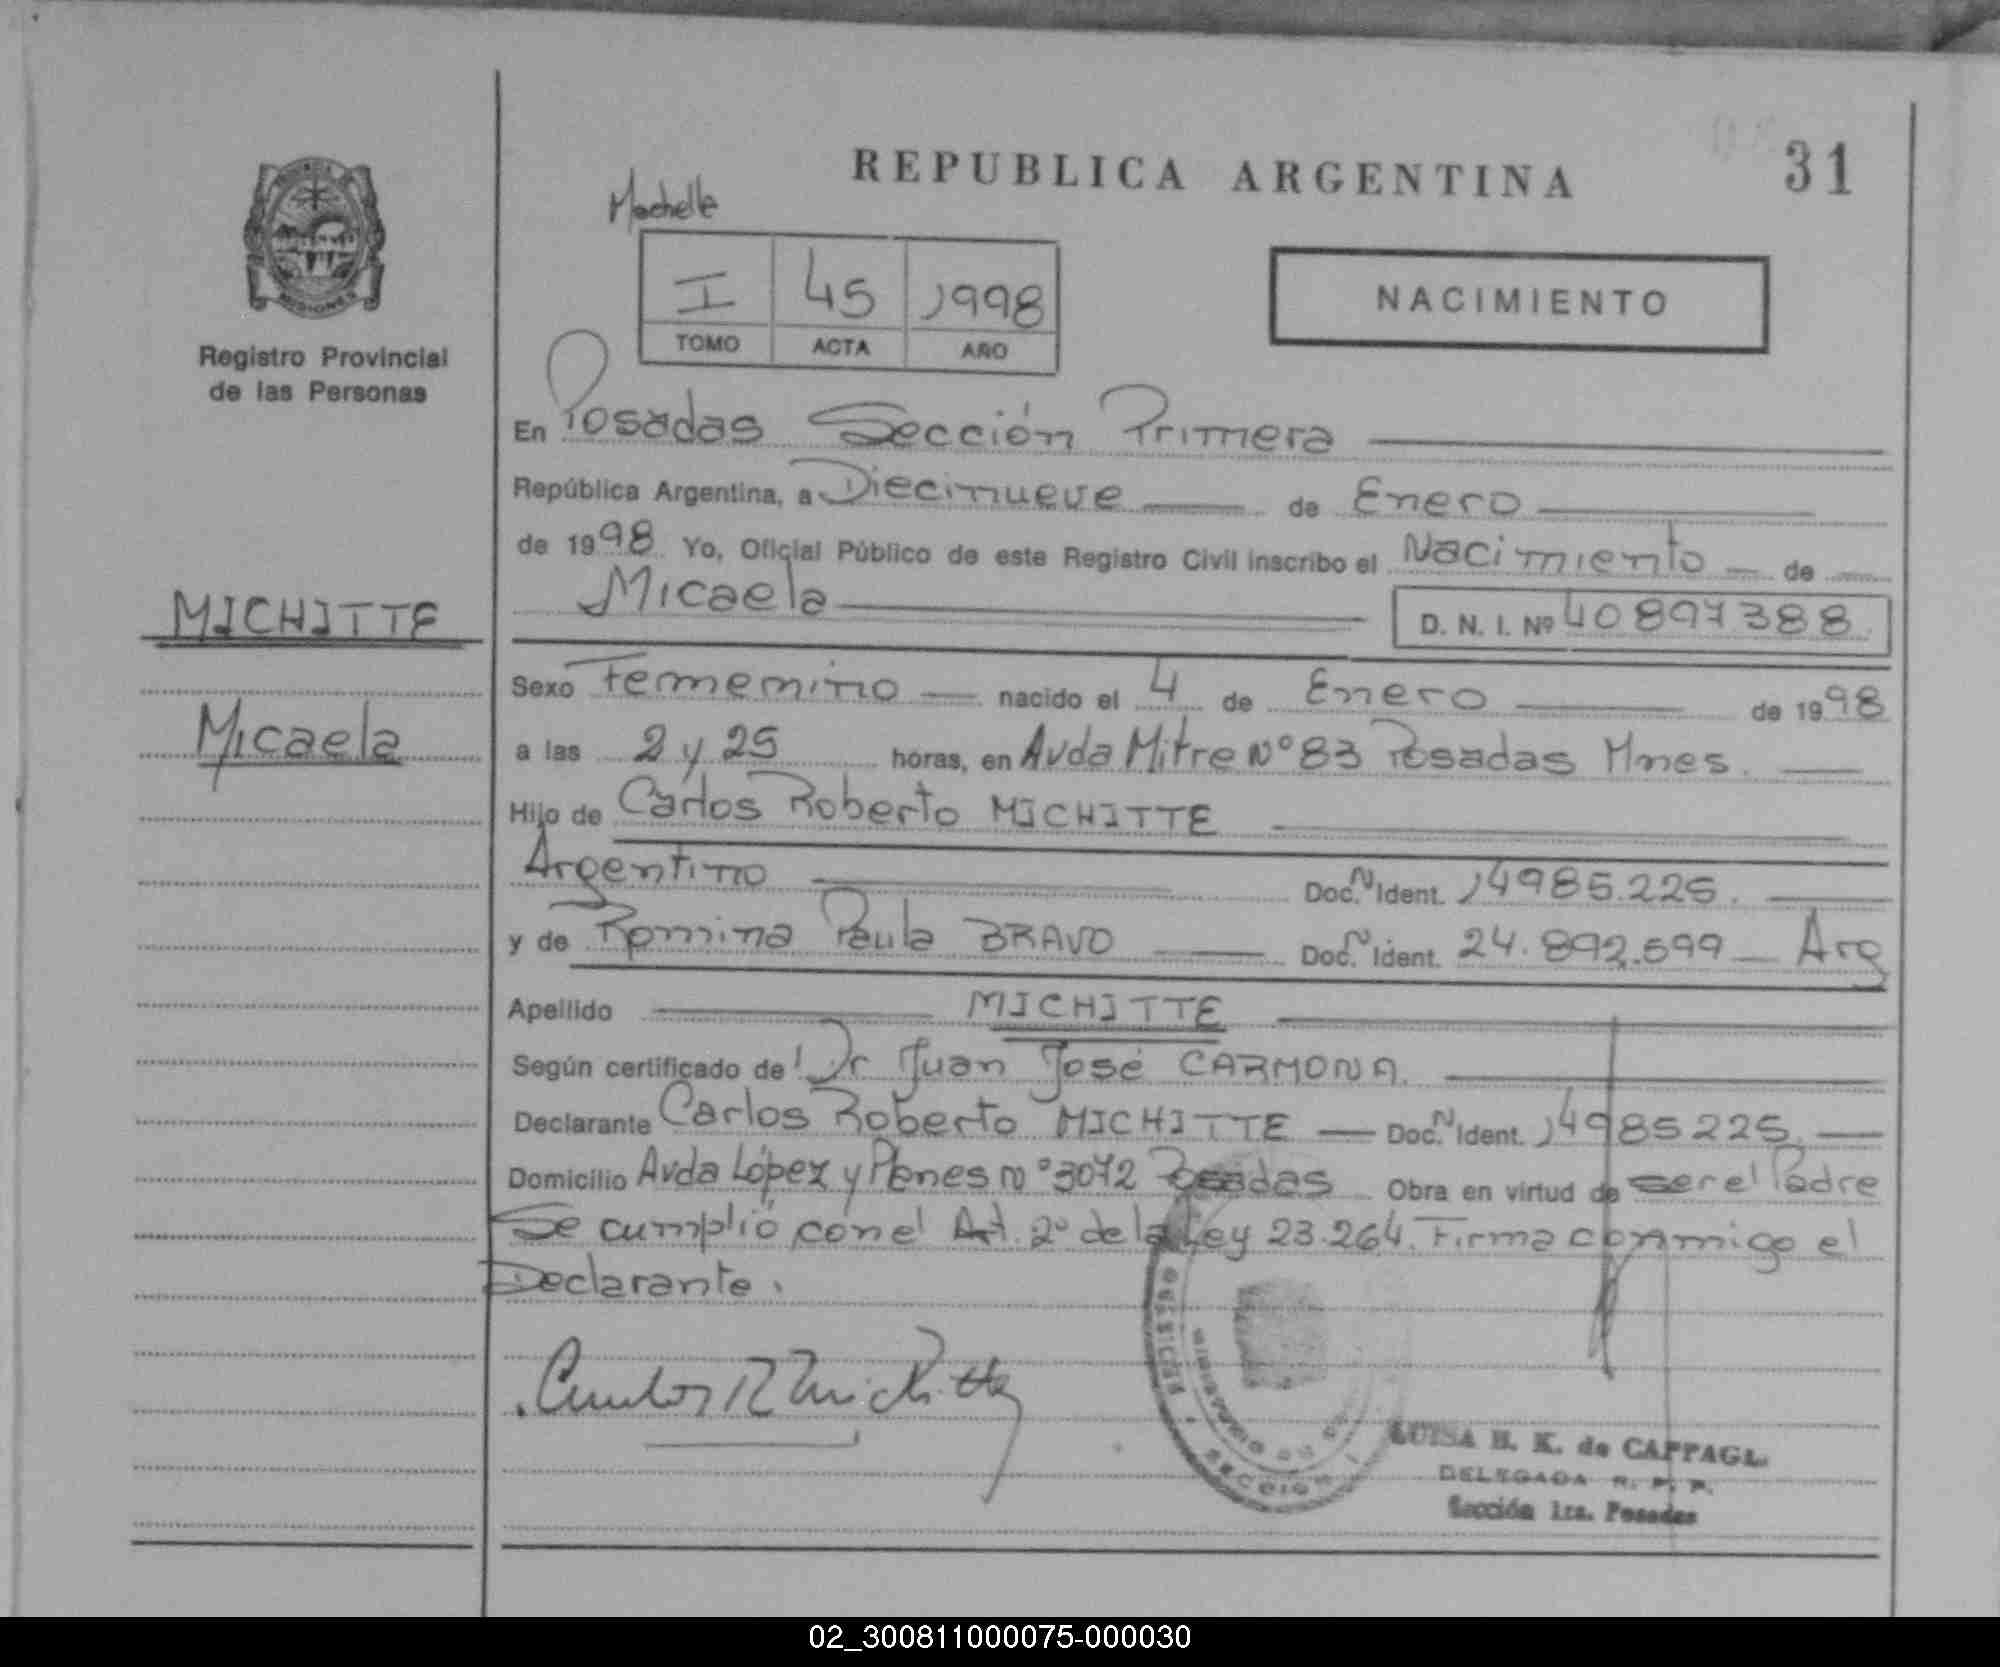 REPUBLICA ARGENTINA
31
I 45 1998
TOMO ACTA AÑO
NACIMIENTO
MISIONES
Registro Provincial
de las Personas
MICHITTE
Micaela
En Posadas Sección Primera
República Argentina, a Diecinueve de Enero
de 1998 Yo, Oficial Público de este Registro Civil inscribo el Nacimiento de
Micaela D. N. I. Nº 40897388
Sexo Femenino nacido el 4 de Enero de 1998
a las 2 y 25 horas, en Avda Mitre Nº 83 Posadas Mnes.
Hijo de Carlos Roberto MICHITTE
Argentino Doc. N Ident. 14985.225.
y de Romina Paula BRAVO Doc. N Ident. 24.892.599 Arg
Apellido MICHITTE
Según certificado de Dr Juan José CARMONA.
Declarante Carlos Roberto MICHITTE Doc. N Ident. 14985225.
Domicilio Avda López y Planes Nº 3072 Posadas Obra en virtud de ser el Padre
Se cumplió con el Art. 2º de la Ley 23.264. Firma conmigo el
Declarante.
SECCION 1
LUISA H. K. de CAPPAGL.
DELEGADA R. P. P.
Sección 1ra. Posadas
02_300811000075-000030